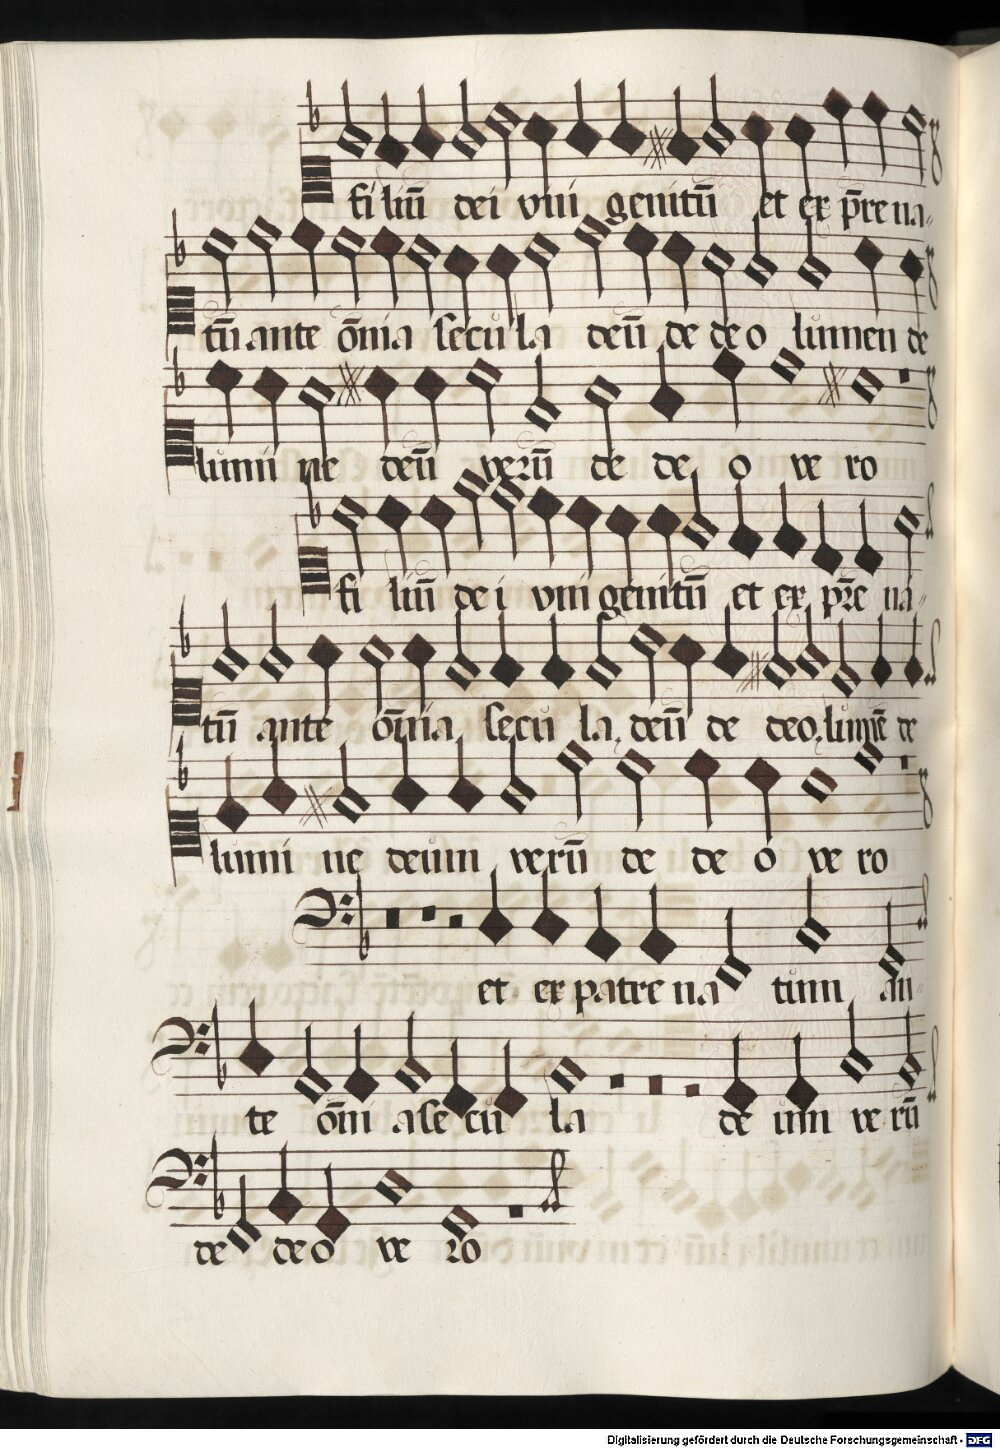 fi liū dei vni genitū et ex p̄re na-
tū ante ōnia secu la deū de deo lumen de
lumi ne deū verū de de o ve ro
fi liū de i vni genitū et ex p̄re na-
tū ante ōnia secu la deū de deo lumē de
lumi ne deum verū de de o ve ro
et ex patre na tum an-
te ōni a secu la de um ve rū
de de o ve ro
Digitalisierung gefördert durch die Deutsche Forschungsgemeinschaft - DFG